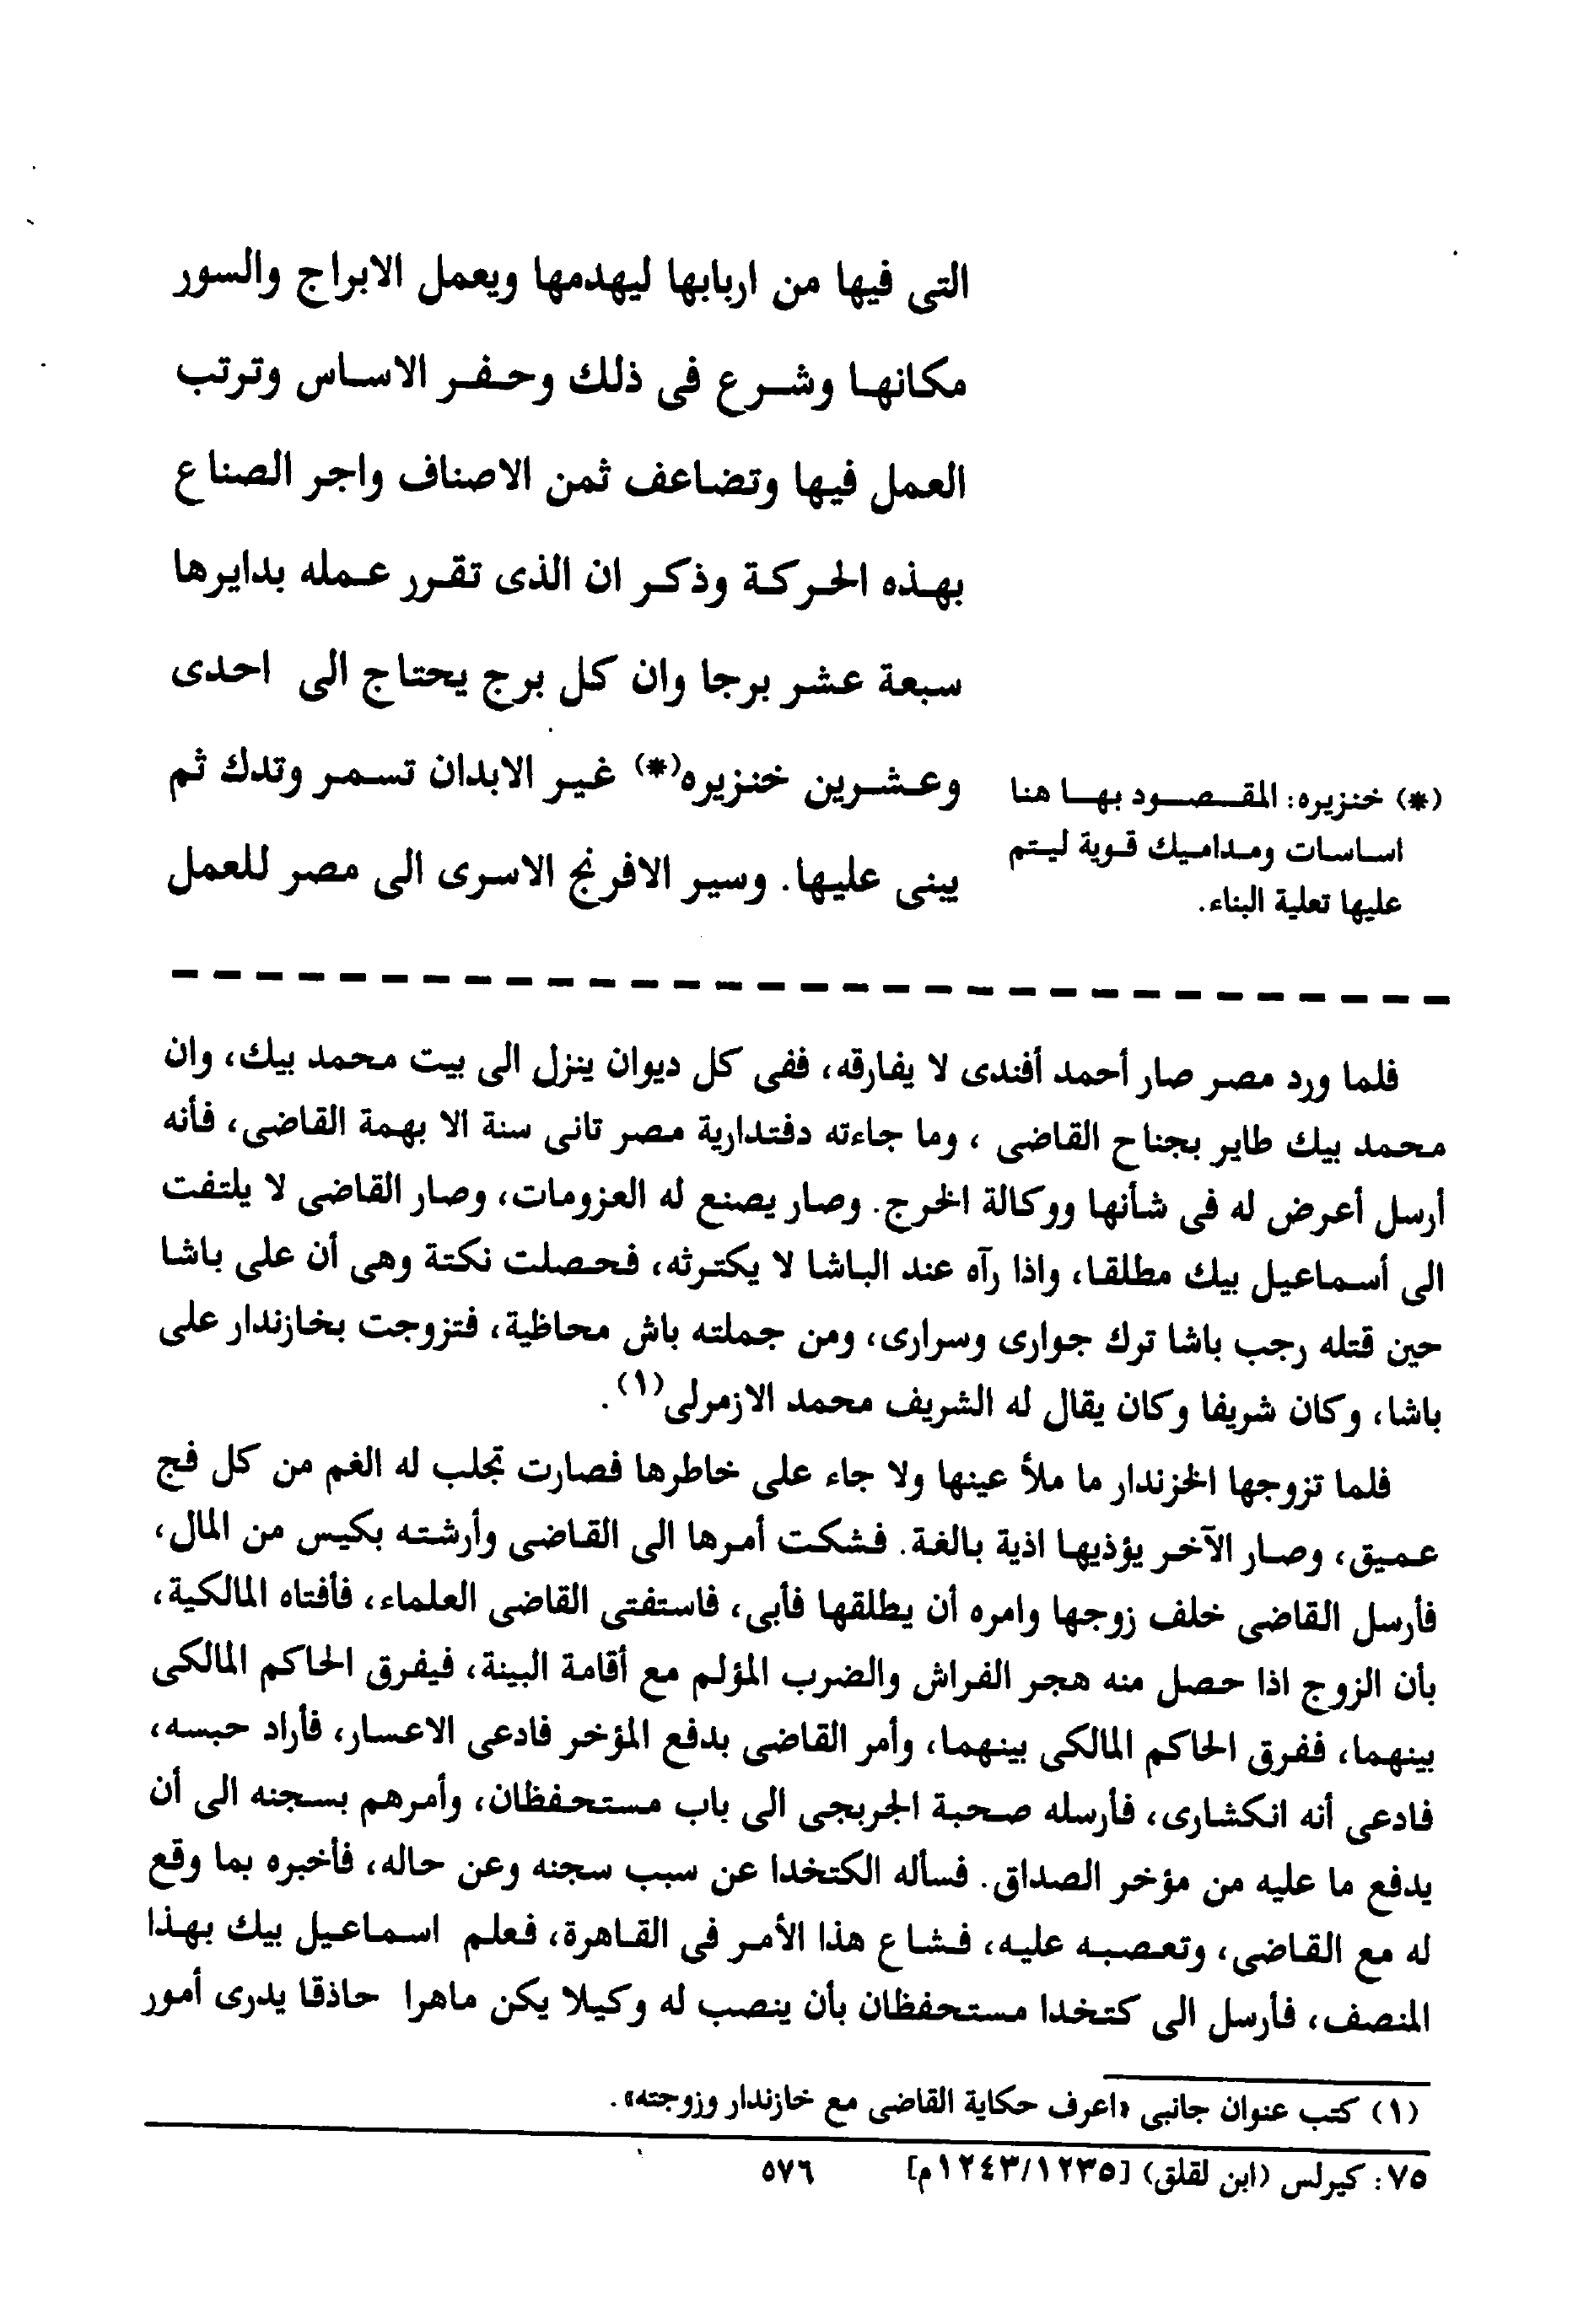 التى فيها من اربابها ليهدمها ويعمل الابراج والسور
مكانها وشرع فى ذلك وحفر الاساس وترتب
العمل فيها وتضاعف ثمن الاصناف واجر الصناع
بهذه الحركة وذكر ان الذى تقرر عمله بدايرها
سبعة عشر برجا وان كل برج يحتاج الى احدى
وعشرين خنزيره(*) غير الابدان تسمر وتدك ثم
يبنى عليها. وسير الافرنج الاسرى الى مصر للعمل
(*) خنزيره: المقصود بها هنا
اساسات ومداميك قوية ليتم
عليها تعلية البناء.
فلما ورد مصر صار أحمد أفندى لا يفارقه، ففى كل ديوان ينزل الى بيت محمد بيك، وان
محمد بيك طاير بجناح القاضى ، وما جاءته دفتدارية مصر تانى سنة الا بهمة القاضى، فأنه
أرسل أعرض له فى شأنها ووكالة الخرج. وصار يصنع له العزومات، وصار القاضى لا يلتفت
الى أسماعيل بيك مطلقا، واذا رآه عند الباشا لا يكترثه، فحصلت نكتة وهى أن على باشا
حين قتله رجب باشا ترك جوارى وسرارى، ومن جملته باش محاظية، فتزوجت بخازندار على
باشا، وكان شريفا وكان يقال له الشريف محمد الازمرلى(١).
فلما تزوجها الخزندار ما ملأ عينها ولا جاء على خاطرها فصارت تجلب له الغم من كل فج
عميق، وصار الآخر يؤذيها اذية بالغة. فشكت أمرها الى القاضى وأرشته بكيس من المال،
فأرسل القاضى خلف زوجها وامره أن يطلقها فأبى، فاستفتى القاضى العلماء، فأفتاه المالكية،
بأن الزوج اذا حصل منه هجر الفراش والضرب المؤلم مع أقامة البينة، فيفرق الحاكم المالكى
بينهما، ففرق الحاكم المالكى بينهما، وأمر القاضى بدفع المؤخر فادعى الاعسار، فأراد حبسه،
فادعى أنه انكشارى، فأرسله صحبة الجربجى الى باب مستحفظان، وأمرهم بسجنه الى أن
يدفع ما عليه من مؤخر الصداق. فسأله الكتخدا عن سبب سجنه وعن حاله، فأخبره بما وقع
له مع القاضى، وتعصبه عليه، فشاع هذا الأمر فى القاهرة، فعلم اسماعيل بيك بهذا
المنصف، فأرسل الى كتخدا مستحفظان بأن ينصب له وكيلا يكن ماهرا حاذقا يدرى أمور
(١) كتب عنوان جانبى «اعرف حكاية القاضى مع خازندار وزوجته».
٧٥: كيرلس (ابن لقلق) [١٢٤٣/١٢٣٥م] ٥٧٦